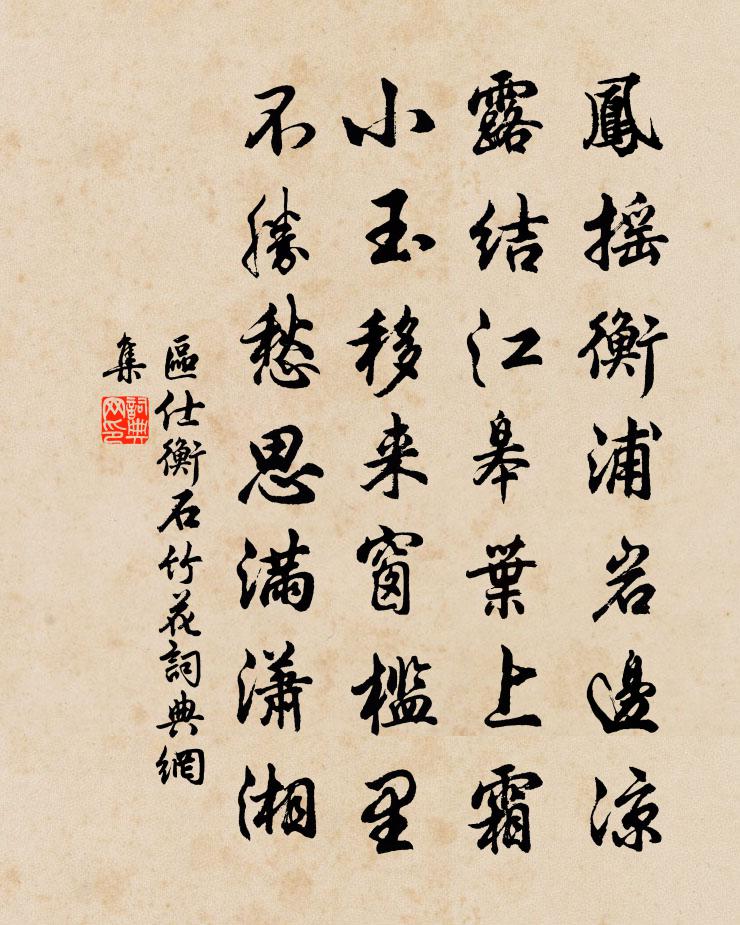 鳳摇衡浦岩邊凉
露結江皋葉上霜
小玉移来窗檻里
不勝愁思滿瀟湘
區仕衡石竹花詞典網
集
詞典
网印